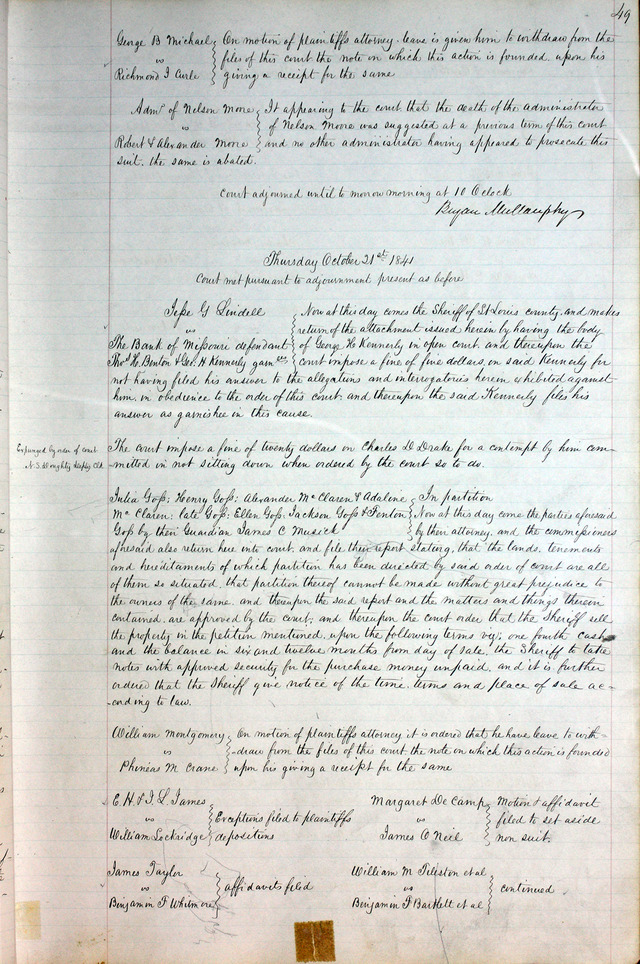 49
George B Michael } On motion of plaintiffs attorney leave is given him to withdraw from the
vs } files of this court the note on which this action is founded upon his
Richmond J Curle } giving a receipt for the same
Admr of Nelson Moore } It appearing to the court that the death of the administrator
vs } of Nelson Moore was suggested at a previous term of this court
Robert & Alexander Moore } and no other administrator having appeared to prosecute this
suit. the same is abated.
Court adjourned until to morrow morning at 10 Oclock
Bryan Mullanphy
Thursday October 21st 1841
Court met pursuant to adjournment present as before
Jesse G Lindell } Now at this day comes the Sheriff of St Louis county. and makes
vs } return of the attachment issued herein by having the body
The Bank of Missouri defendant } of George H Kennerly in open court. and thereupon the
Thos H. Benton & Geo. H Kennerly garnees } court impose a fine of five dollars, on said Kennerly for
not having filed his answer to the allegations and interrogatories herein exhibited against
him, in obedience to the order of this court. and thereupon the said Kennerly files his
answer as garnishee in this cause.
Expunged by order of court
N. S. Doughty Deputy Clk
The court impose a fine of twenty dollars on Charles D Drake for a contempt by him com-
mitted in not setting down when ordered by the court so to do.
Julia Goss; Henry Goss; Alexander McClaren & Adaline } In partition
McClaren; late Goss; Ellen Goss; Jackson Goss & Fenton } Now at this day come the parties aforesaid
Goss by their Guardian James C Musick } by their attorney, and the commissioners
aforesaid also return here into court, and file their report stating, that the lands, tenements
and hereditaments of which partition has been directed by said order of court are all
of them so situated. that partition thereof cannot be made without great prejudice to
the owners of the same. and thereupon the said report and the matters and things therein
contained, are approved by the court; and thereupon the court order that the Sheriff sell
the property in the petition mentioned, upon the following terms viz; one fourth cash
and the balance in six and twelve months from day of sale. the Sheriff to take
notes with approved security for the purchase money unpaid, and it is further
ordered that the Sheriff give notice of the time, terms and place of sale ac-
cording to law.
William Montgomery } On motion of plaintiffs attorney it is ordered that he have leave to with
vs } -draw from the files of this court the note on which this action is founded
Phineas M Crane } upon his giving a receipt for the same
E. H & J. L James } Exceptions filed to plaintiffs
vs } depositions
William Lockridge
Margaret De Camp } Motion & affidavit
vs } filed to set aside
James O Neil } non suit.
James Taylor
vs } affidavits filed
Benjamin F Whitmore
William M Tileston et al
vs } continued
Benjamin F Bartlett et al